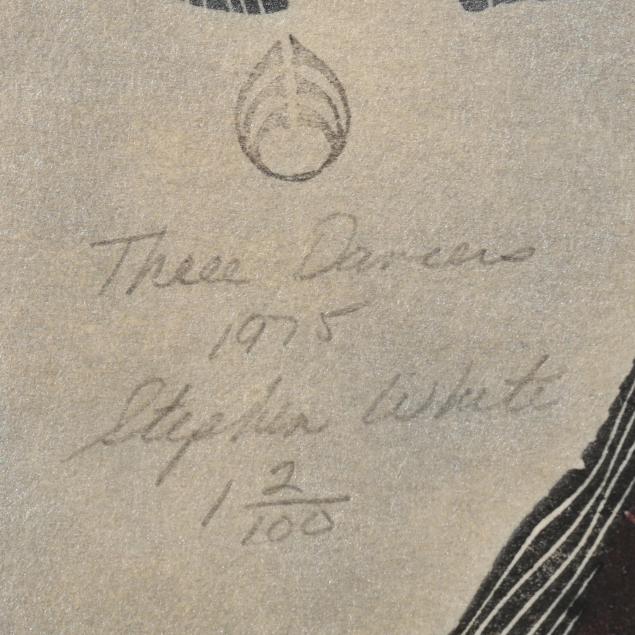 Three Dancers
1975
Stephen White
1 2/100